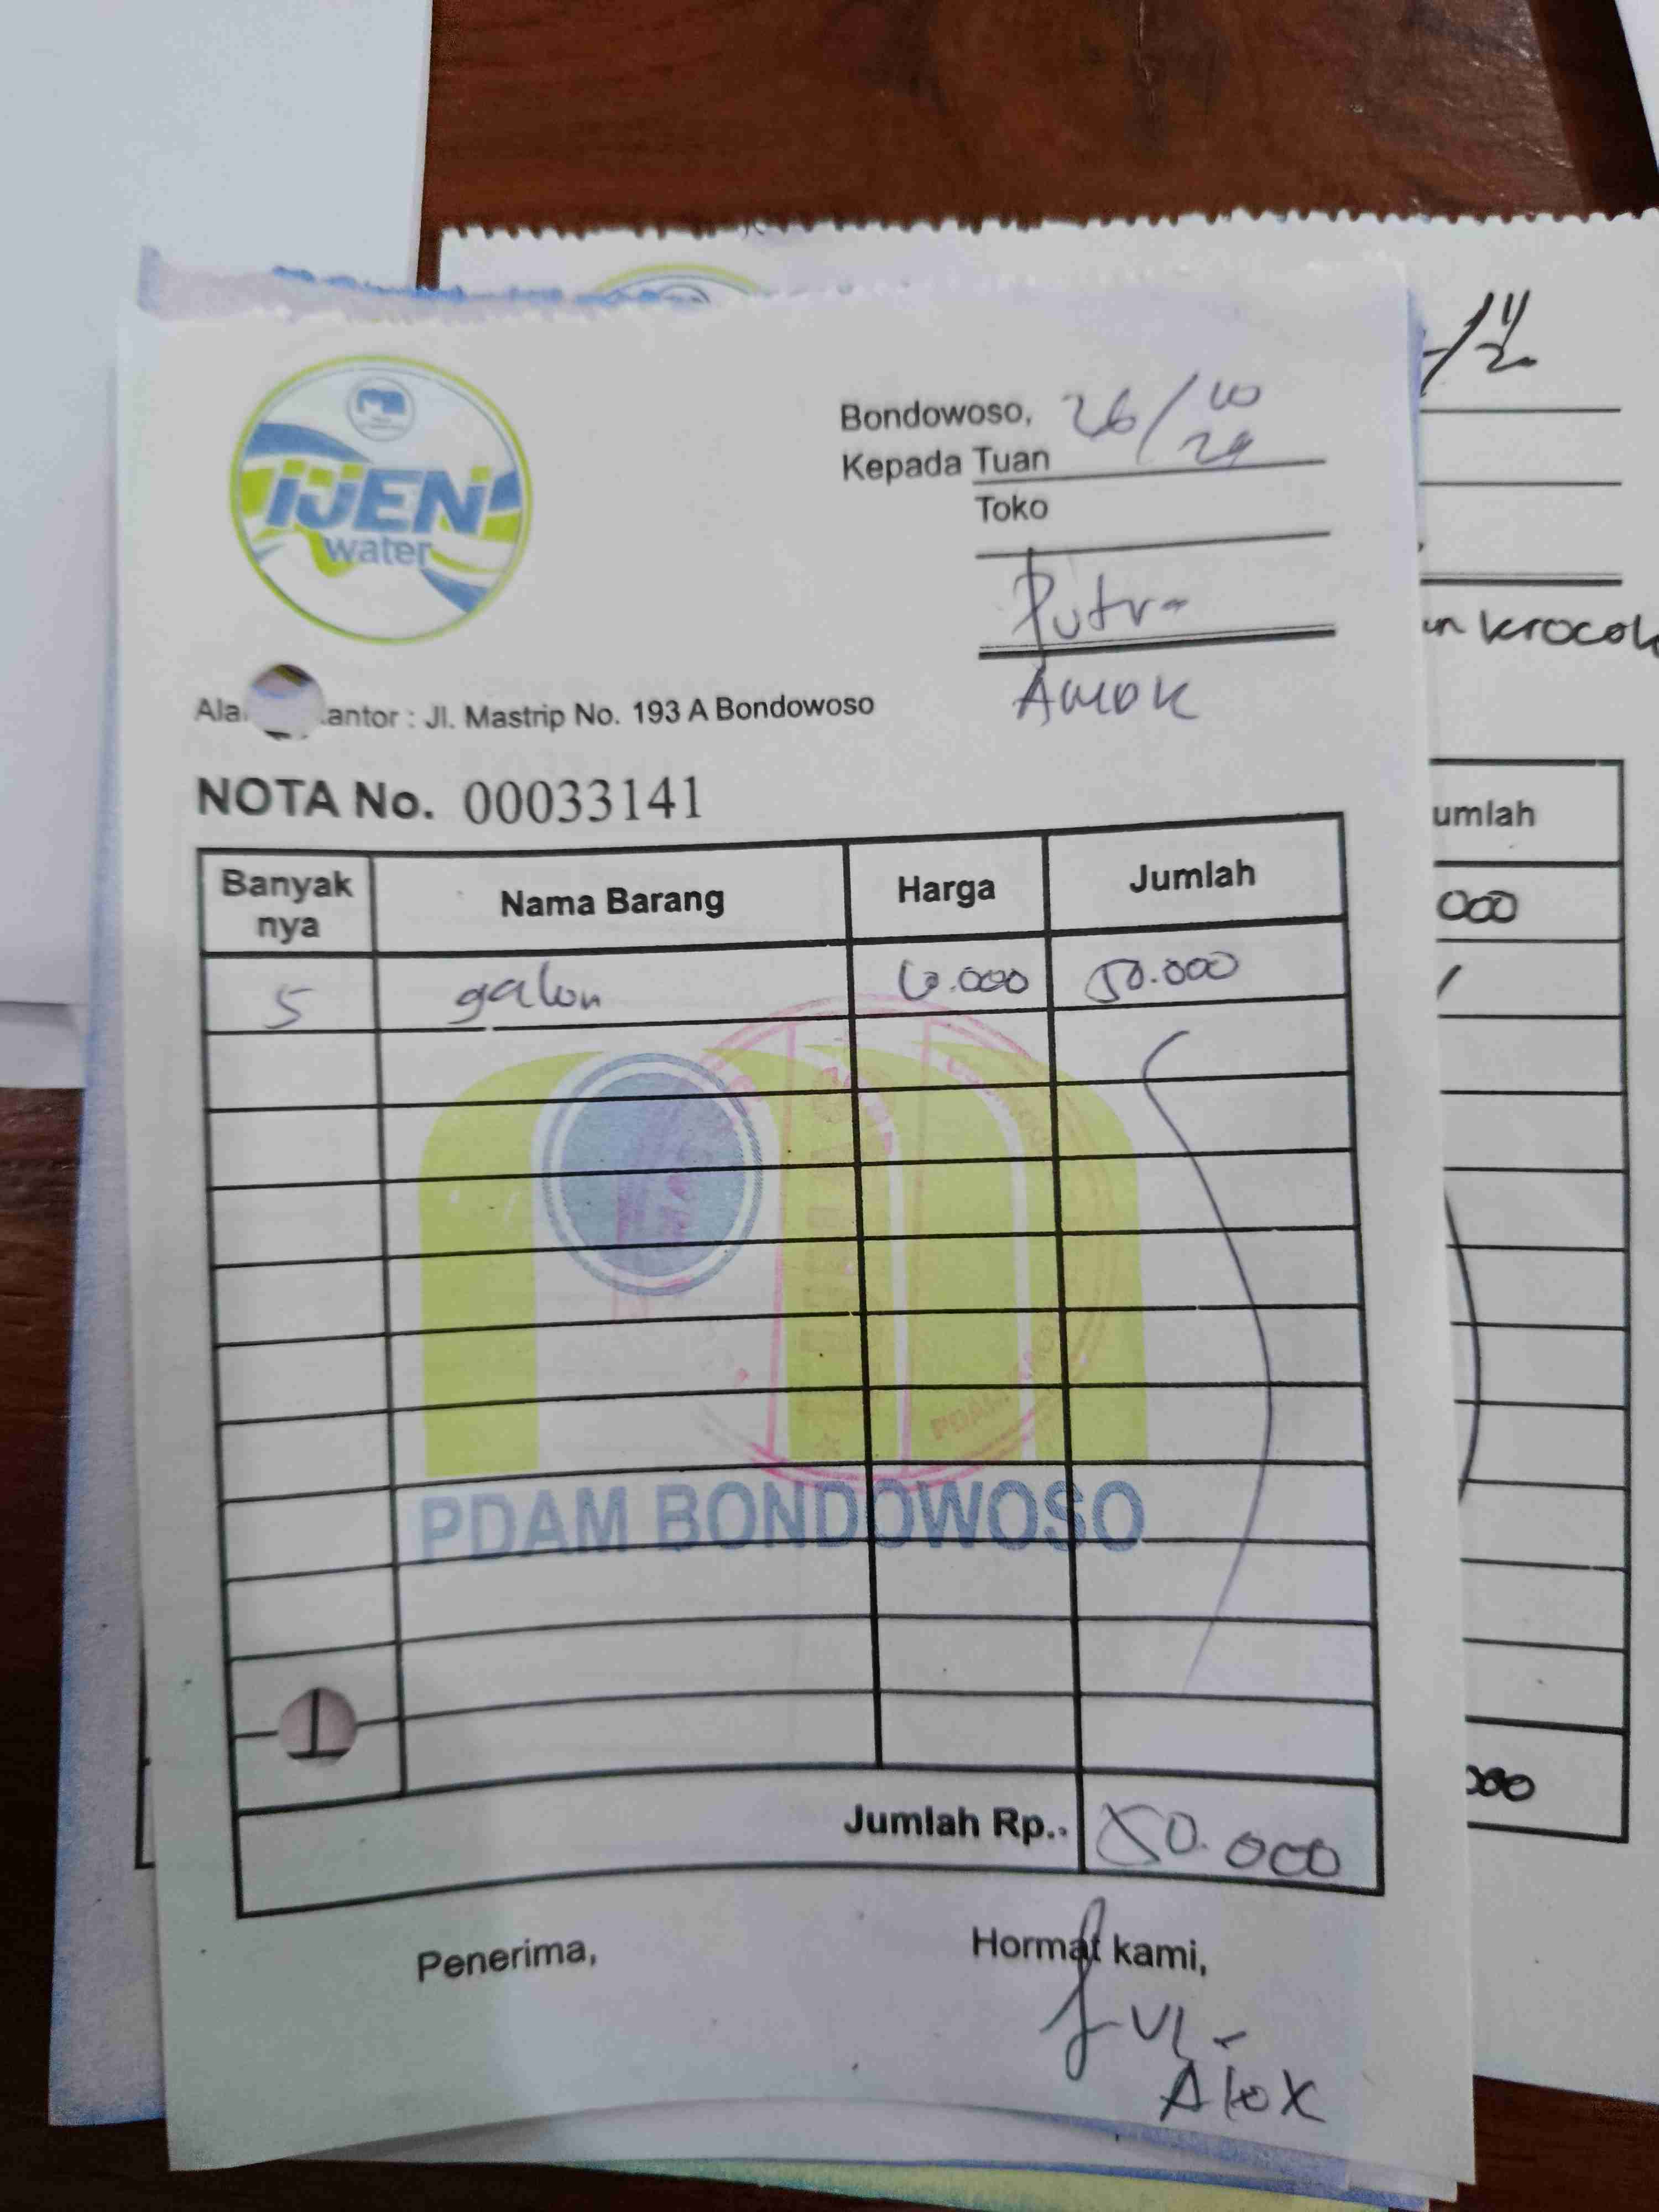 IJEN
water
Bondowoso, 26/10
24
Kepada Tuan
Toko
Putra
Amok
Kantor : Jl. Mastrip No. 193 A Bondowoso
NOTA No. 00033141
Banyak nya Nama Barang Harga Jumlah
5 galon 10.000 50.000
PDAM BONDOWOSO
Jumlah Rp.. 50.000
Penerima, Hormat kami,
Alex
umlah
000
000